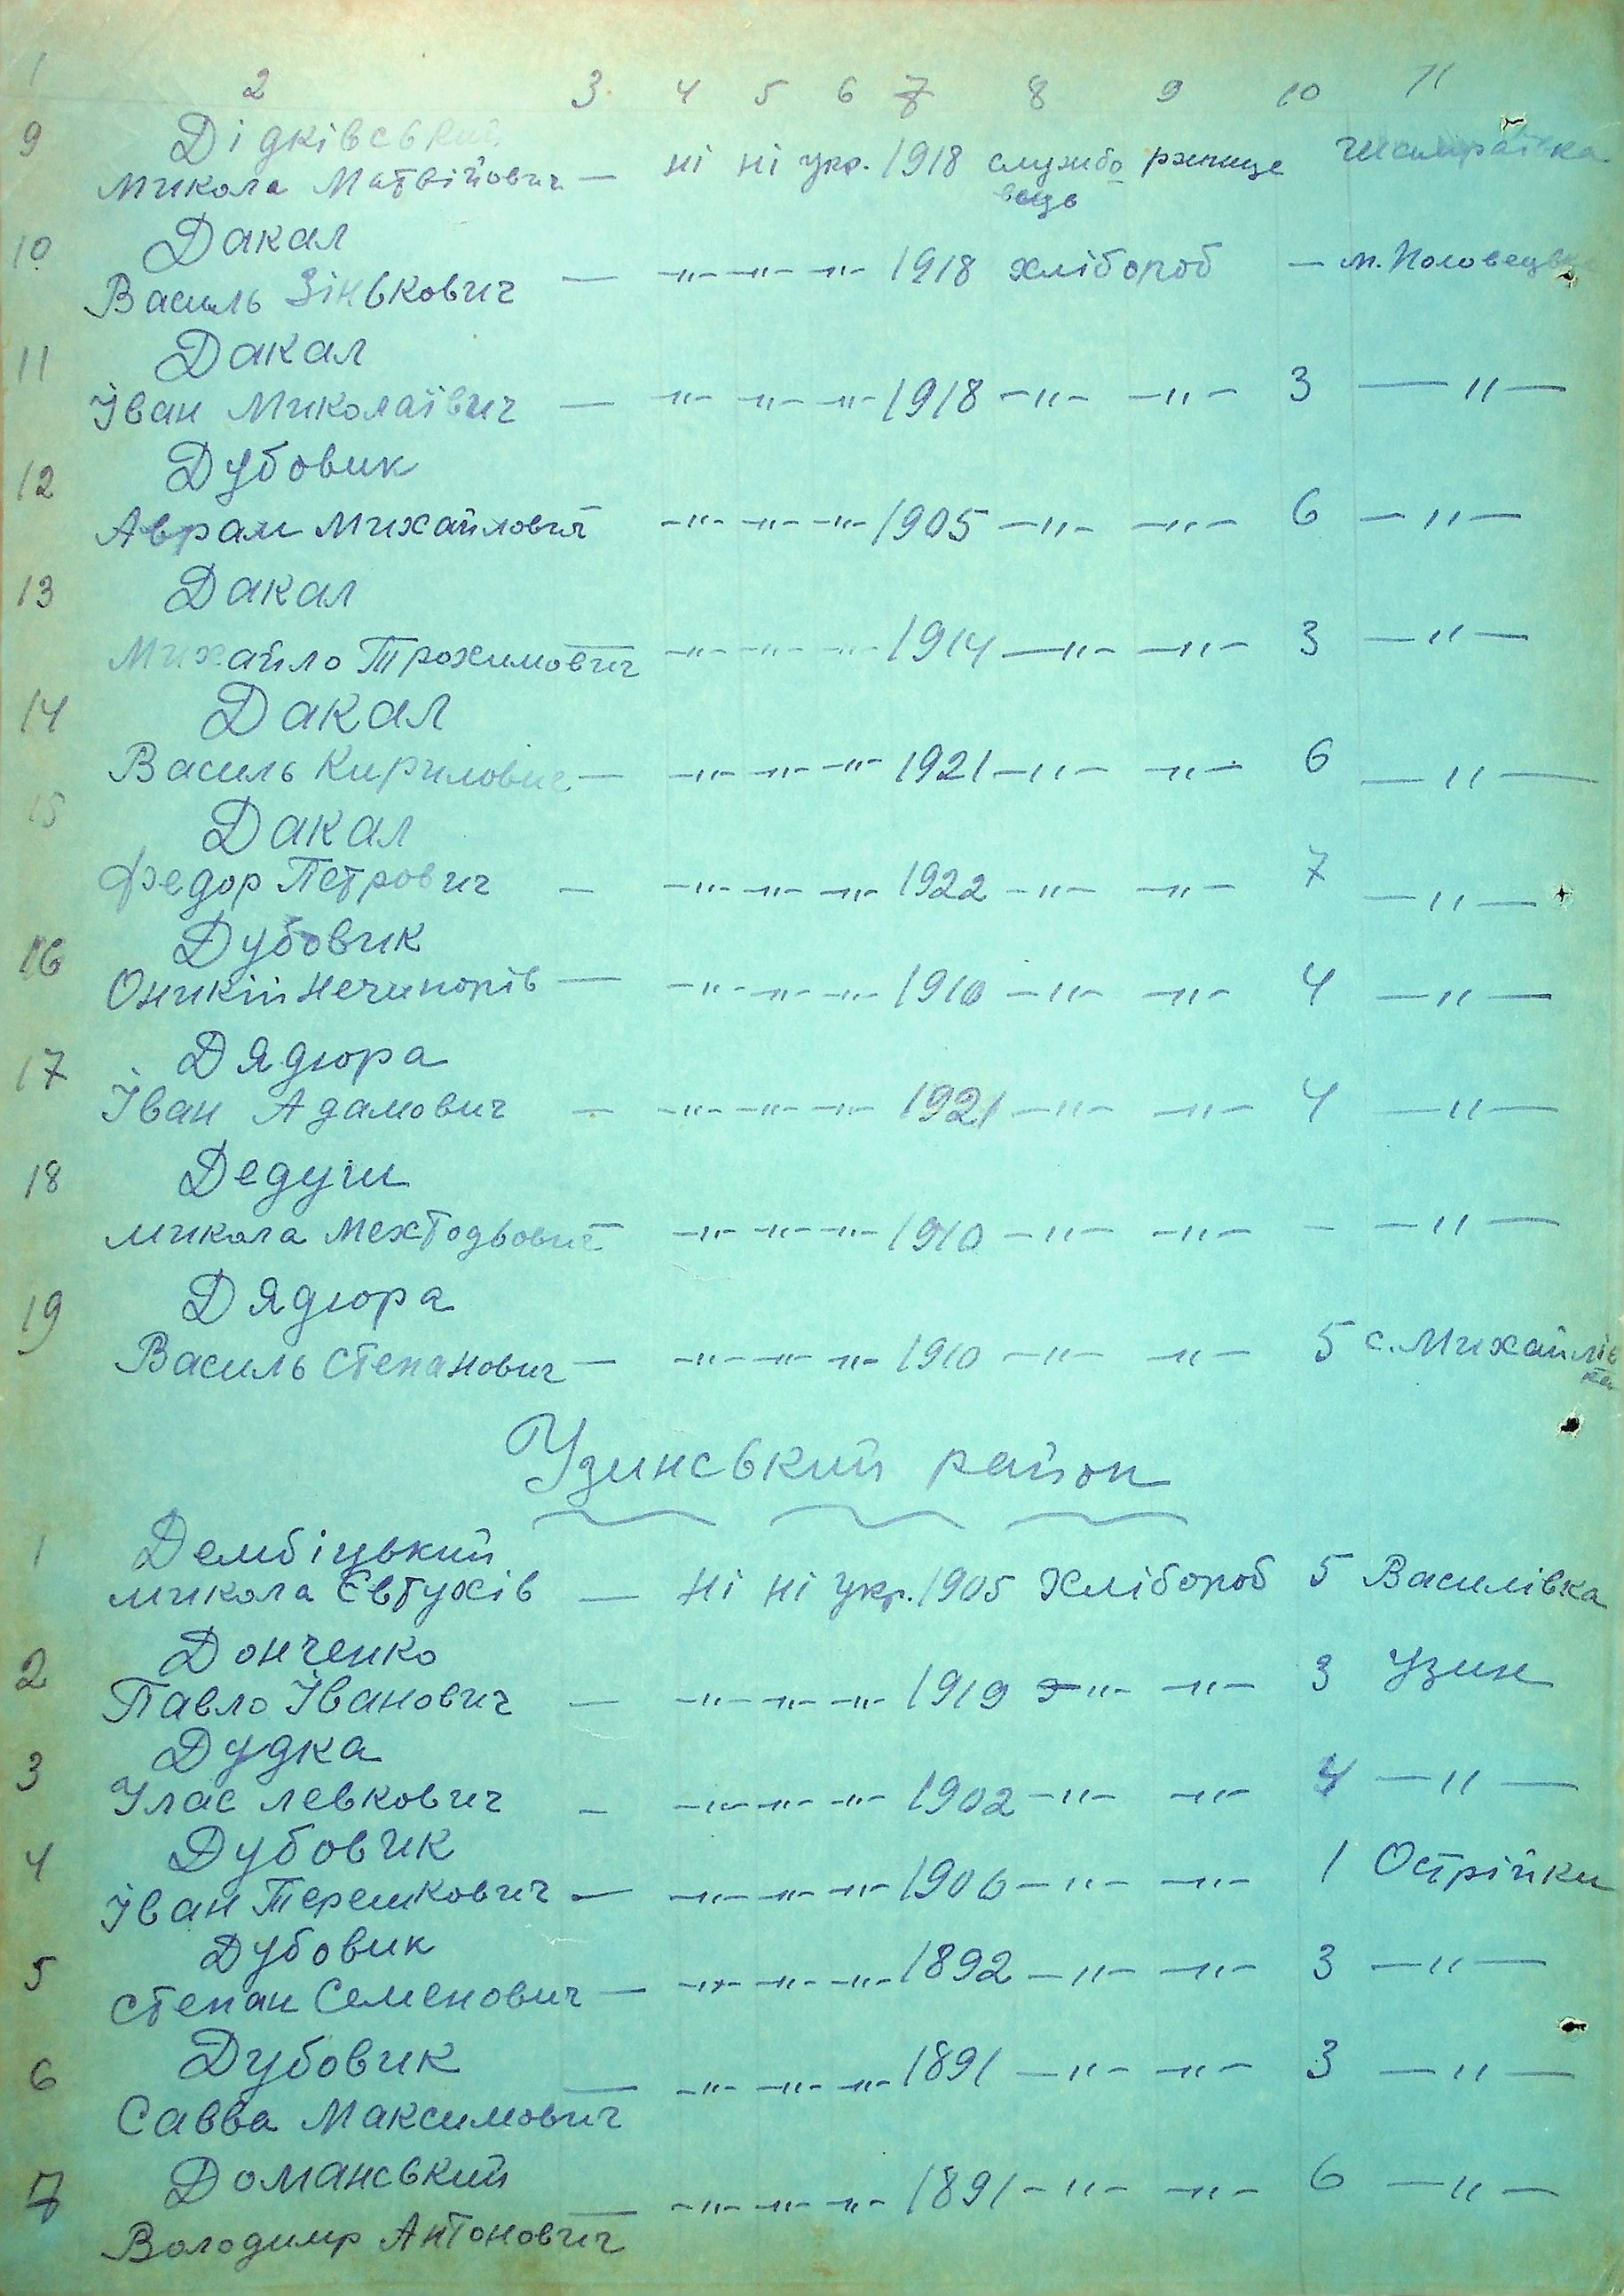 1 2 3 4 5 6 7 8 9 10 11
9 Дідківський
Микола Матвійович — ні ні укр. 1918 службо ржище
вець
10 Дакал
Василь Зінькович — -"- -"- -"- 1918 хлібороб — м. Половецьке
11 Дакал
Іван Миколаївич — -"- -"- -"- 1918 -"- -"- 3 —"—
12 Дубовик
Аврам Михайлович -"- -"- -"- 1905 -"- -"- 6 —"—
13 Дакал
Михайло Трохимович -"- -"- -"- 1914 -"- -"- 3 —"—
14 Дакал
Василь Кирилович — -"- -"- -"- 1921 -"- -"- 6 —"—
15 Дакал
Федор Петрович — -"- -"- -"- 1922 -"- -"- 7 —"—
16 Дубовик
Оникій Нечипорів — -"- -"- -"- 1910 -"- -"- 4 —"—
17 Дядюра
Іван Адамович — -"- -"- -"- 1921 -"- -"- 4 —"—
18 Дедуш
Микола -"- -"- -"- 1910 -"- -"- - —"—
19 Дядюра
Василь Степанович — -"- -"- -"- 1910 -"- -"- 5 с. Михайлів
ка
Узинський район
1 Дембіцький
Микола Євтухів — ні ні укр. 1905 Хлібороб 5 Василівка
2 Донченко
Павло Іванович — -"- -"- -"- 1919 -"- -"- 3 Узин
3 Дудка
Улас Левкович — -"- -"- -"- 1902 -"- -"- 4 —"—
4 Дубовик
Іван Терешкович — -"- -"- -"- 1906 -"- -"- 1 Острійки
5 Дубовик
Степан Семенович — -"- -"- -"- 1892 -"- -"- 3 —"—
6 Дубовик — -"- -"- -"- 1891 -"- -"- 3 —"—
Савва Максимович
7 Доманський — -"- -"- -"- 1891 -"- -"- 6 —"—
Володимир Антонович